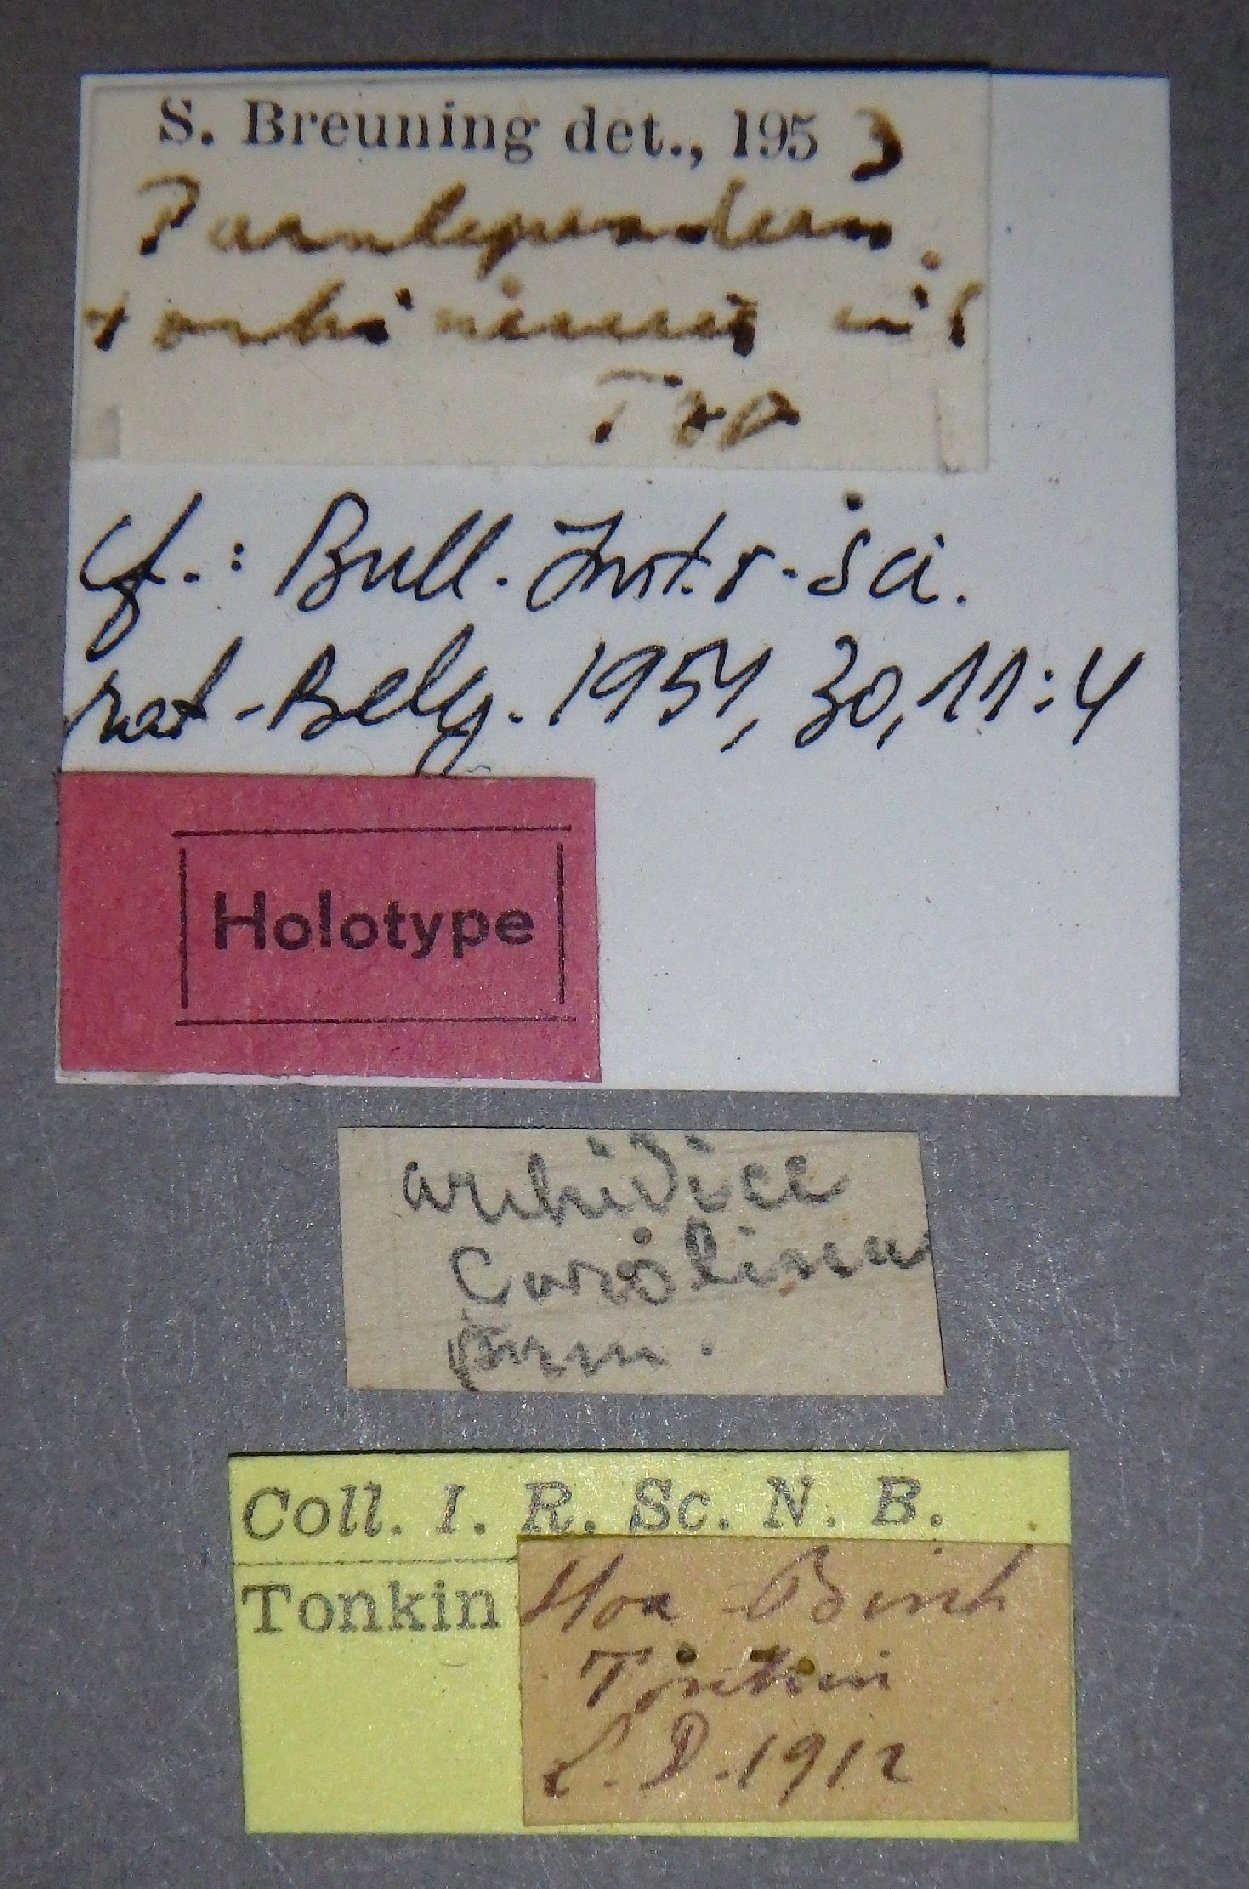 S. Breuning det., 1953
Paraleprodera
tonkinensis mihi
Typ
cf.: Bull. Inst. r. Sci.
nat. Belg. 1954, 30, 11:4
Holotype
archidice
Carolina
Coll. I. R. Sc. N. B.
Tonkin
Hoa-Binh
Tonkin
L. D. 1912